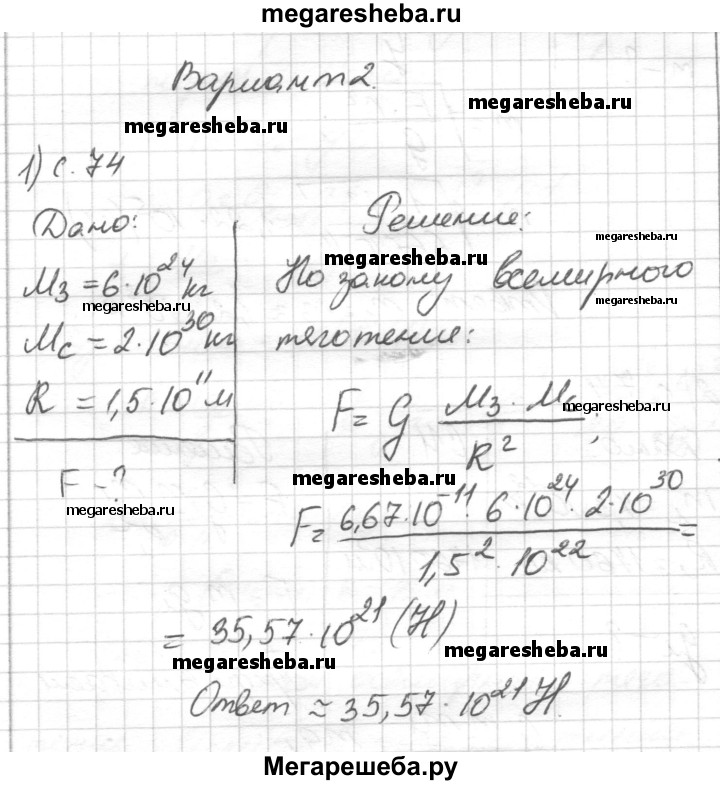 megaresheba.ru
Вариант 2.
megaresheba.ru
megaresheba.ru
1) с. 74
Дано:
Mз = 6·10²⁴ кг
megaresheba.ru
Mс = 2·10³⁰ кг
R = 1,5·10¹¹ м
F - ?
megaresheba.ru
Решение:
megaresheba.ru
megaresheba.ru
По закону всемирного
megaresheba.ru
тяготение:
F = G (Mз · Mс) / R²,
megaresheba.ru
megaresheba.ru
F = (6,67·10⁻¹¹ · 6·10²⁴ · 2·10³⁰) / (1,5² · 10²²) =
= 35,57·10²¹ (Н)
megaresheba.ru
megaresheba.ru
Ответ ≈ 35,57·10²¹ Н.
Мегарешеба.ру